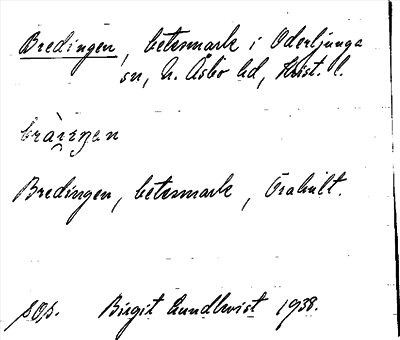 Bredingen, betesmark i Oderljunga
sn, N. Åsbo hd, Krist. l.
Bredingen, betesmark, Örahult.
sOp. Birgit Lundkvist 1938.